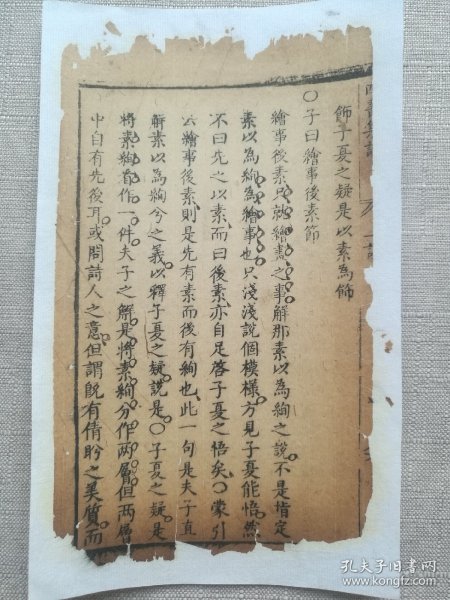 飾子夏之疑是以素為飾
〇子曰繪事後素節
繪事後素只就繪畫之事解那素以為絢之說不是肯定
素以為絢為繪事也只淺淺說個模樣方見子夏能悟然
不曰先之以素而曰後素亦自足啓子夏之悟矣〇蒙引
云繪事後素則是先有素而後有絢也此一句是夫子直
解素以為絢兮之義以釋子夏之疑說是〇子夏之疑是
將素絢看作一件夫子之解是將素絢分作两層但两層
中自有先後耳或問詩人之意但謂既有倩盼之美質而
孔夫子旧书网
www.kongfz.com